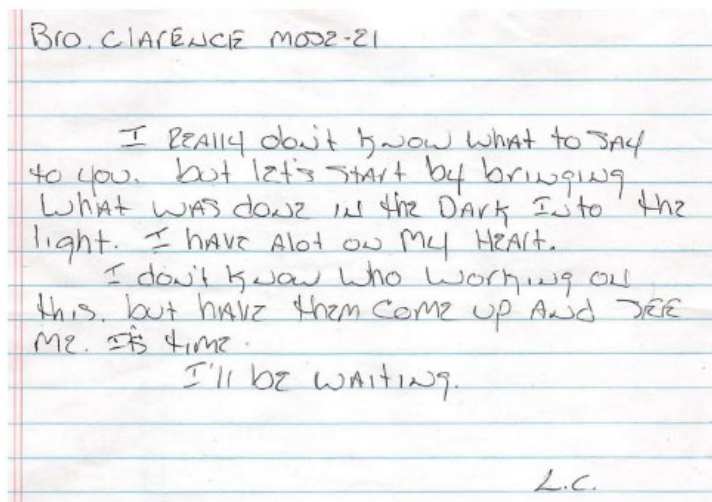 Bro. Clarence Moses-El
I really don't know what to say
to you. but let's start by bringing
what was done in the dark into the
light. I have alot on my heart.
I don't know who working on
this. but have them come up and see
me. It's time.
I'll be waiting.
L.C.